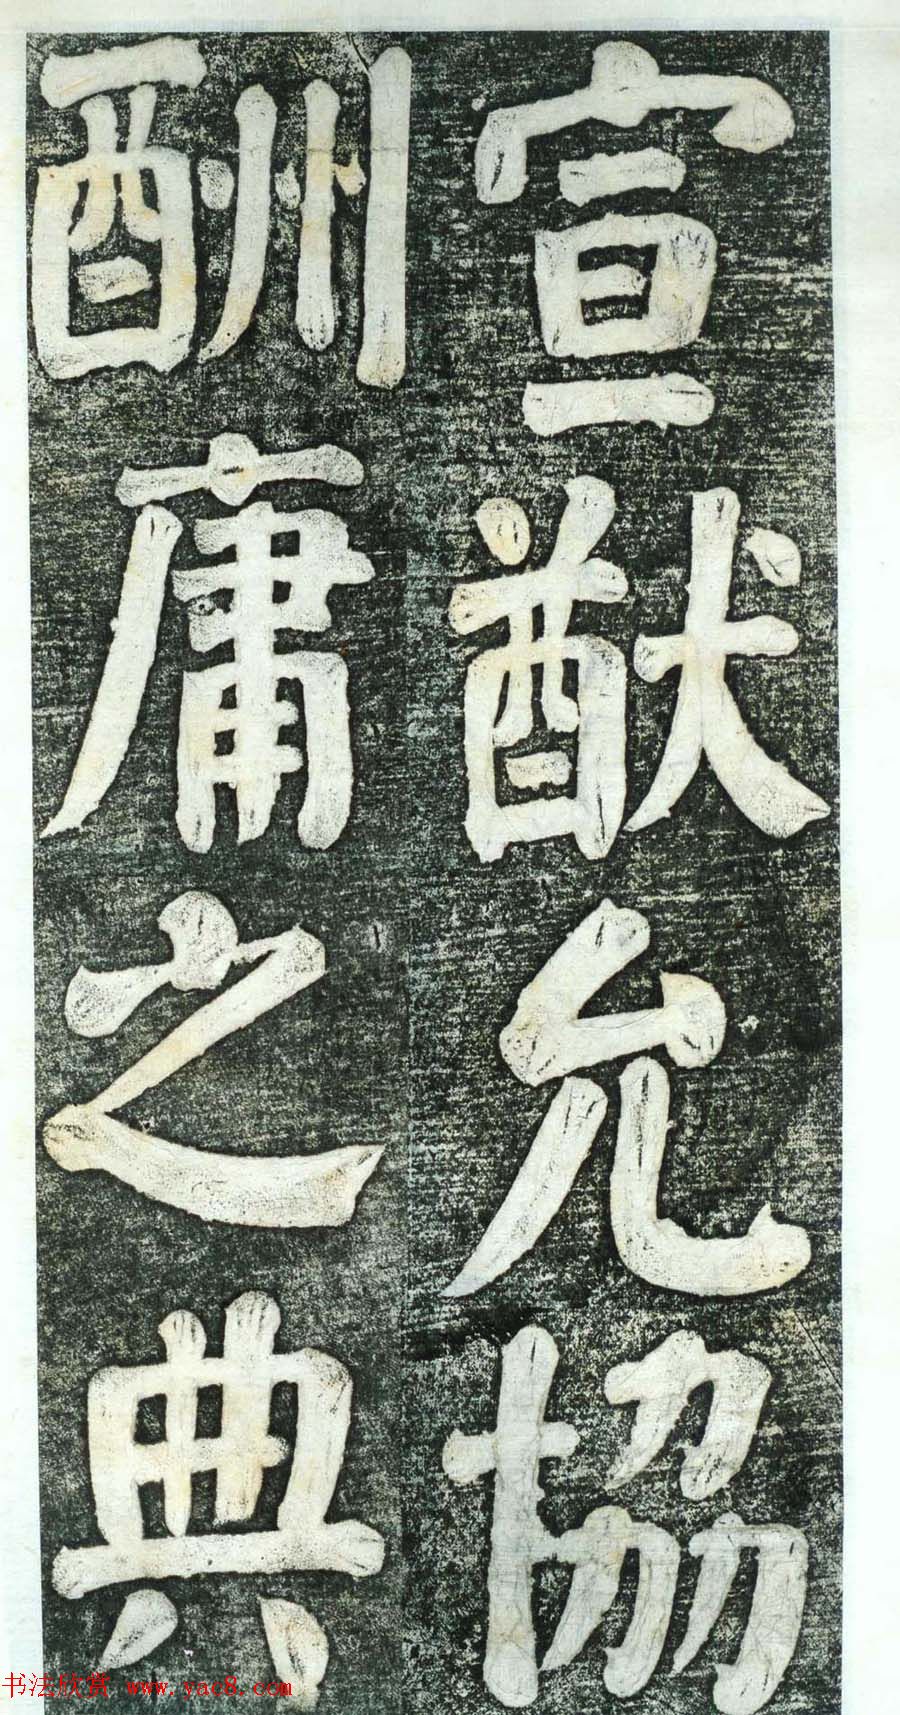 宣猷允協
酬庸之典
书法欣赏 www.yac8.com